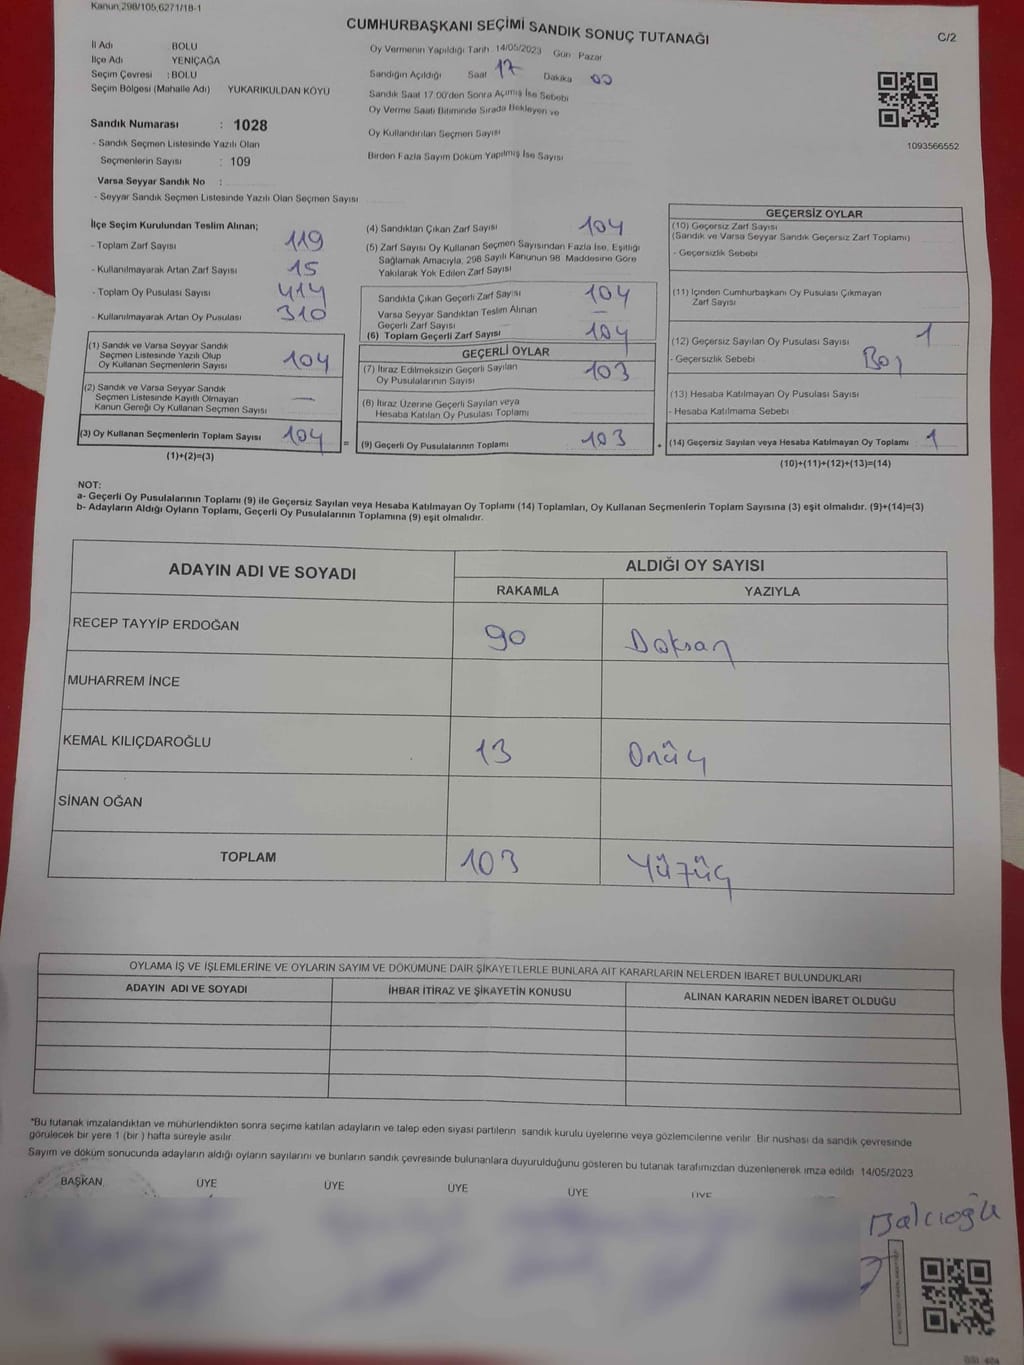 Kanun,298/105,6271/18-1
CUMHURBAŞKANI SEÇİMİ SANDIK SONUÇ TUTANAĞI
C/2
İl Adı BOLU
İlçe Adı YENİÇAĞA
Seçim Çevresi : BOLU
Seçim Bölgesi (Mahalle Adı) YUKARIKULDAN KÖYÜ
Oy Vermenin Yapıldığı Tarih 14/05/2023 Gün Pazar
Sandığın Açıldığı Saat 17 Dakika 00
Sandık Saat 17:00'den Sonra Açımış İse Sebebi
Oy Verme Saati Bitiminde Sırada Bekleyen ve
Oy Kullandırılan Seçmen Sayısı
Birden Fazla Sayım Döküm Yapılmış İse Sayısı
1093566552
Sandık Numarası : 1028
- Sandık Seçmen Listesinde Yazılı Olan
Seçmenlerin Sayısı : 109
Varsa Seyyar Sandık No :
- Seyyar Sandık Seçmen Listesinde Yazılı Olan Seçmen Sayısı
İlçe Seçim Kurulundan Teslim Alınan;
- Toplam Zarf Sayısı 119
- Kullanılmayarak Artan Zarf Sayısı 15
- Toplam Oy Pusulası Sayısı 414
- Kullanılmayarak Artan Oy Pusulası 310
(1) Sandık ve Varsa Seyyar Sandık
Seçmen Listesinde Yazılı Olup
Oy Kullanan Seçmenlerin Sayısı 104
(2) Sandık ve Varsa Seyyar Sandık
Seçmen Listesinde Kayıtlı Olmayan
Kanun Gereği Oy Kullanan Seçmen Sayısı —
(3) Oy Kullanan Seçmenlerin Toplam Sayısı 104 =
(1)+(2)=(3)
(4) Sandıktan Çıkan Zarf Sayısı 104
(5) Zarf Sayısı Oy Kullanan Seçmen Sayısından Fazla İse, Eşitliği
Sağlamak Amacıyla, 298 Sayılı Kanunun 98 Maddesine Göre
Yakılarak Yok Edilen Zarf Sayısı
Sandıkta Çıkan Geçerli Zarf Sayısı 104
Varsa Seyyar Sandıktan Teslim Alınan
Geçerli Zarf Sayısı —
(6) Toplam Geçerli Zarf Sayısı 104
GEÇERLİ OYLAR
(7) İtiraz Edilmeksizin Geçerli Sayılan
Oy Pusulalarının Sayısı 103
(8) İtiraz Üzerine Geçerli Sayılan veya
Hesaba Katılan Oy Pusulası Toplamı
(9) Geçerli Oy Pusulalarının Toplamı 103 +
GEÇERSİZ OYLAR
(10) Geçersiz Zarf Sayısı
(Sandık ve Varsa Seyyar Sandık Geçersiz Zarf Toplamı)
- Geçersizlik Sebebi
(11) İçinden Cumhurbaşkanı Oy Pusulası Çıkmayan
Zarf Sayısı
(12) Geçersiz Sayılan Oy Pusulası Sayısı 1
- Geçersizlik Sebebi Boş
(13) Hesaba Katılmayan Oy Pusulası Sayısı
- Hesaba Katılmama Sebebi
(14) Geçersiz Sayılan veya Hesaba Katılmayan Oy Toplamı 1
(10)+(11)+(12)+(13)=(14)
NOT:
a- Geçerli Oy Pusulalarının Toplamı (9) ile Geçersiz Sayılan veya Hesaba Katılmayan Oy Toplamı (14) Toplamları, Oy Kullanan Seçmenlerin Toplam Sayısına (3) eşit olmalıdır. (9)+(14)=(3)
b- Adayların Aldığı Oyların Toplamı, Geçerli Oy Pusulalarının Toplamına (9) eşit olmalıdır.
ADAYIN ADI VE SOYADI
ALDIĞI OY SAYISI
RAKAMLA YAZIYLA
RECEP TAYYİP ERDOĞAN 90 Doksan
MUHARREM İNCE
KEMAL KILIÇDAROĞLU 13 Onüç
SİNAN OĞAN
TOPLAM 103 Yüzüç
OYLAMA İŞ VE İŞLEMLERİNE VE OYLARIN SAYIM VE DÖKÜMÜNE DAİR ŞİKAYETLERLE BUNLARA AİT KARARLARIN NELERDEN İBARET BULUNDUKLARI
ADAYIN ADI VE SOYADI İHBAR İTİRAZ VE ŞİKAYETİN KONUSU ALINAN KARARIN NEDEN İBARET OLDUĞU
*Bu tutanak imzalandıktan ve mühürlendikten sonra seçime katılan adayların ve talep eden siyasi partilerin sandık kurulu üyelerine veya gözlemcilerine verilir. Bir nüshası da sandık çevresinde
görülecek bir yere 1 (bir) hafta süreyle asılır.
Sayım ve döküm sonucunda adayların aldığı oyların sayılarını ve bunların sandık çevresinde bulunanlara duyurulduğunu gösteren bu tutanak tarafımızdan düzenlenerek imza edildi 14/05/2023
BAŞKAN ÜYE ÜYE ÜYE ÜYE ÜYE
Balcıoğlu